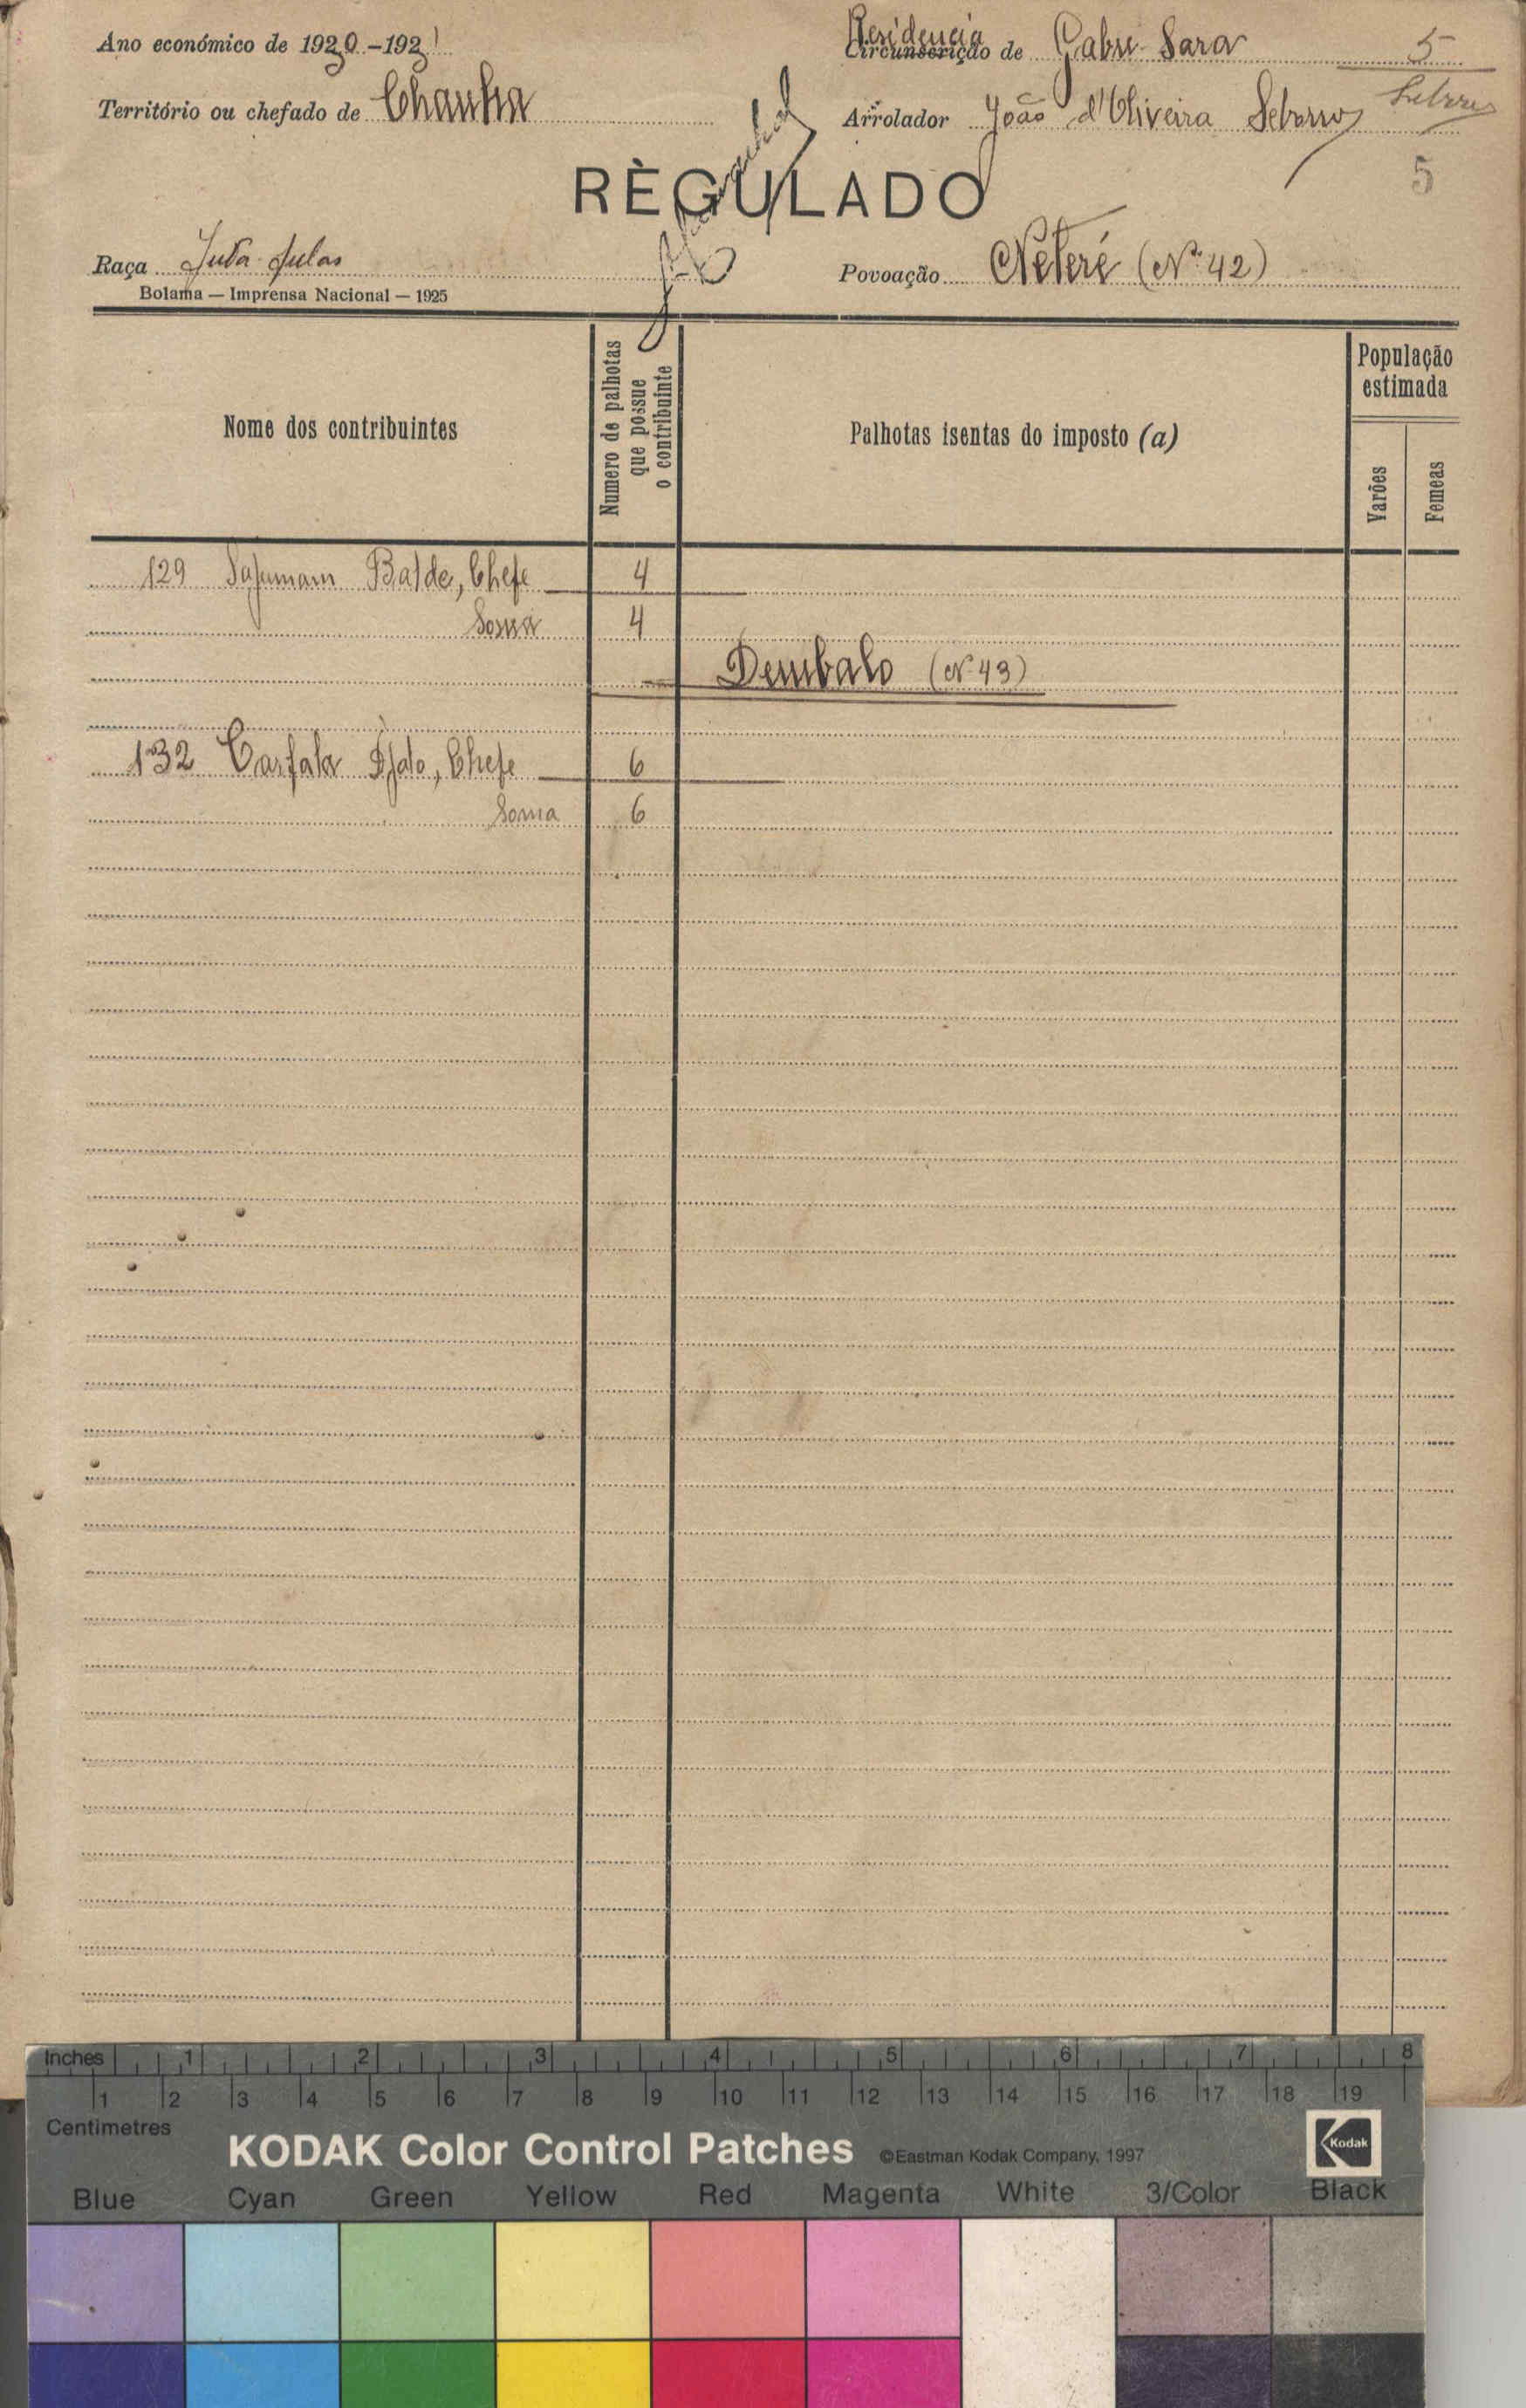 Ano económico de 1930-1931
Residencia
Circunscrição de Gabu-Sara
5
Território ou chefado de Chanha
Arrolador João d'Oliveira
5
RÈGULADO
Raça Futa-fulas
Povoação Néteré (Nº 42)
Bolama — Imprensa Nacional — 1925
Nome dos contribuintes
Numero de palhotas que possue o contribuinte
Palhotas isentas do imposto (a)
População estimada
Varões
Femeas
129 Balde, Chefe 4
Soma 4
Dembalo (Nº 43)
132 Djalo, Chefe 6
Soma 6
Inches 1 2 3 4 5 6 7 8
1 2 3 4 5 6 7 8 9 10 11 12 13 14 15 16 17 18 19
Centimetres
KODAK Color Control Patches ©Eastman Kodak Company, 1997 Kodak
Blue Cyan Green Yellow Red Magenta White 3/Color Black